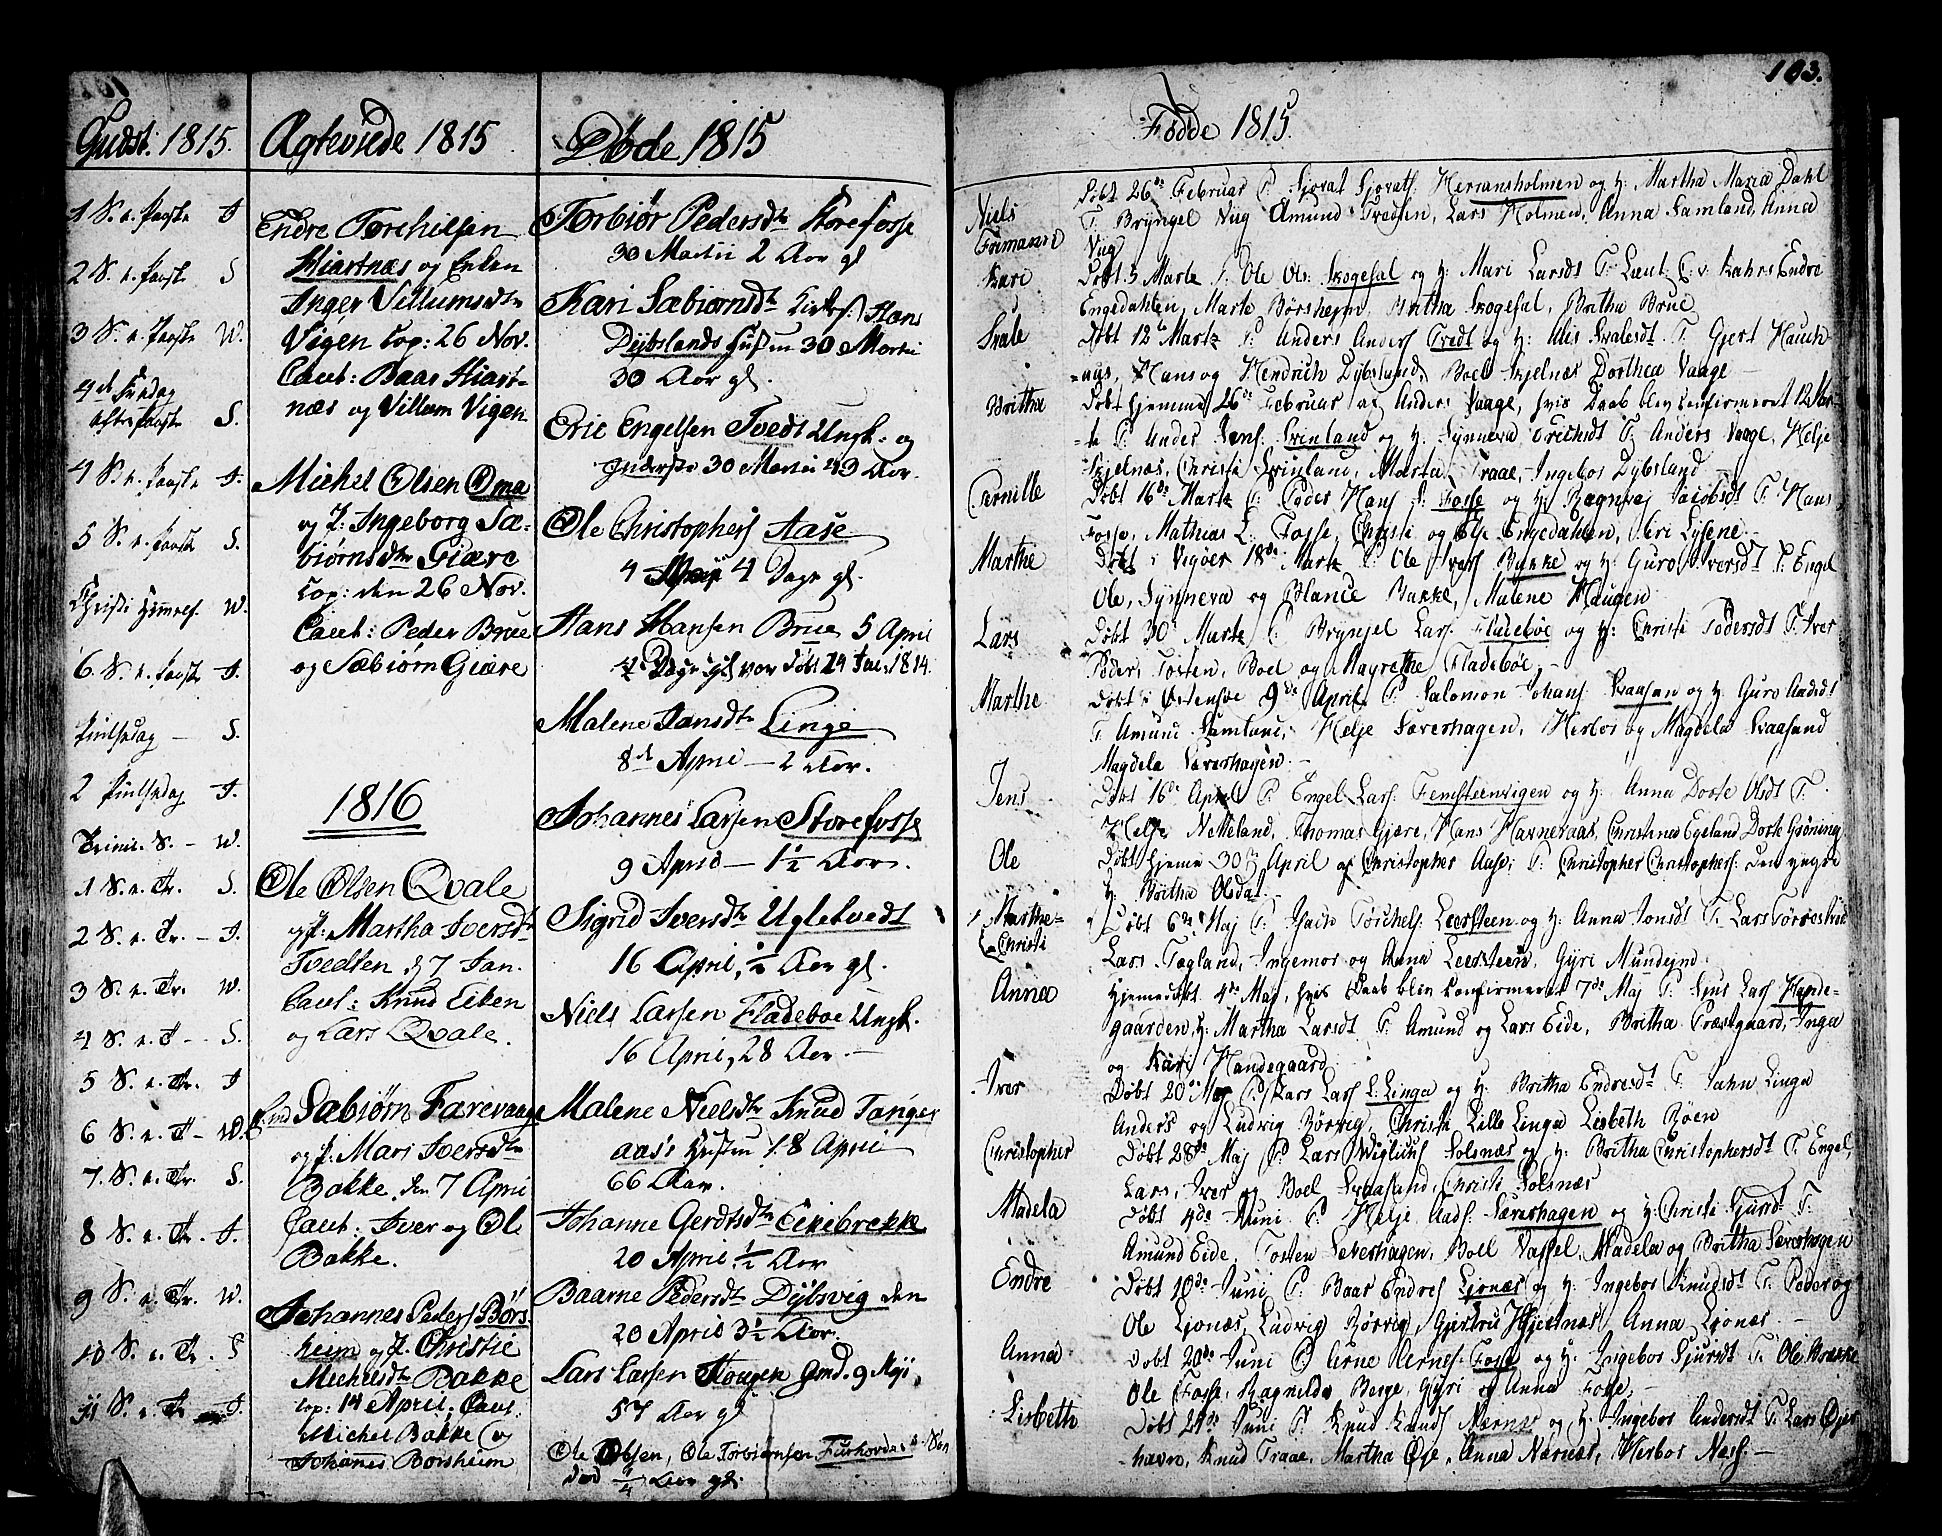 Gudst. 1815.
1 S. e. Paaske J.
2 S. e. Paaske S.
3 S. e. Paaske W.
4de
efter Paaske S.
4 S. e. Paaske J.
5 S. e. Paaske S.
Christi Himmelf. W.
6. S. e. Paaske J.
Pintsedag — S.
2 Pintsedag J.
Trinit. S. — W.
1 S. e. Tr. S.
2 S. e. Tr. — J.
3 S. e. Tr. W.
4 S. e. T - S.
5 S. e. Tr. J
6 S. e. T - W.
7 S. e. Tr. S.
8 S. e. Tr. J.
9 S. e. Tr. W.
10 S. e. Tr. S
11 S. e. Tr J.
Ægteviede 1815
Endre Torchilsen
Hiartnæs og Enken
Inger Villumsdtr
Vigen cop: 26 Nov.
Caut: Baar Hiart-
næs og Villum Vigen
Michel Olsen Oma
og P: Ingeborg Sæ-
biørnsdtr Giære
cop: den 26 Nov.
Caut: Peder Brue
og Sæbiørn Giære
1816
Ole Olsen Qvale
og P: Martha Iversdtr
Tvedten d 7 Jan.
Caut: Knud Eiken
og Lars Qvale.
Sæbiørn Farevaage
og P: Mari Iversdtr
Bakke. den 7 April
Caut: Iver og Ole
Bakke.
Johannes Peders Børs-
heim og P. Christie
Michelsdtr Bakke
cop: 14 April. Caut
Michel Bakke og
Johannes Borsheim
Døde 1815
Torbiør Pedersdtr Storefosse
30 Martii 2 Aar gl
Kari Sæbiørnsdtr Hans
Dybslands Hustru 30 Martii
30 Aar gl.
Eric Engelsen Tvedt Ungk. og
30 Martii 43 Aar
Ole Christophers Aase
4 April 4 Dage gl.
Hans Hansen Brue 5 April
Dage gl var døbt 24 Jul. 1814.
Malene Jansdtr Linge
8de April — 2 Aar.
Johannes Larsen Storefosse
9 April — 1½ Aar.
Sigrid Iversdtr Ugletvedt
16 April, ½ Aar gl.
Niels Larsen Fladebøe Ungk.
16 April, 28 Aar. —
Malene Nielsdtr Knud Tanger
aas's Hustru 18 April
66 Aar.
Johanne Gerdtsdtr Eikebrekke
20 April ½ Aar
Baarne Pedersdtr Dybsvig den
20 April 3½ Aar.
Lars Larsen Hougen Gmd. 9 Maji,
57 Aar gl
Ole Olsen, Ole Torbiørnsen Furhovdes Søn
død ¾ Aar gl.
103.
Fødde 1815.
Niels
Døbt 26de Februar P. Sjovat Sjovats Herransholmen og H. Martha Maria Dahl
T. Bryngel Vug Amund Tvedten, Lars Holmen, Anna Samland Anna
Vug
Kari
Døbt 5 Martz P. Ole Ols. Skogesal og H: Mari Larsdt T. Lieut. C. v. Kahrs Endre
Engedahlen, Marte Børsheim, Britha Skogesal, Britha Brue
Svale
Døbt 12te Martz P. Anders Anders Tvedt og H: Alis Svalesdt. T. Gjert Hauch-
-aas, Hans og Hendrich Dybsland, Boel Skjelnæs Dorthea Vaage —
Britha
Døbt hjemme 26de Februar af Anders Vaage, hvis Daab blev confirmeret 12 Mar-
-ts P. Ander Jens. Svinland og H. Synneva T. Anders Vaage, Helje
Skjelnæs, Christi Svinland, Martha Traae, Ingebor Dybsland
Carnille
Døbt 16de Martz P. Peder Hans St. Fosse og H. Ragnvaj Jacobsdt T. Hans
Fosse, Mathias L. Fosse, Christi og Elje Engedahlen, Siri Lysene
Marthe
Døbt i Vigøer 18de Martz P. Ole Ivers Bakke og H. Guro Iversdt T. Engel
Ole, Synneva og Blance Bakke, Malene Haugen
Lars
Døbt 30 Martz P. Bryngel Lars. Fladebøe og H: Christi Pedersdt T. Iver
Peder, Tosten, Boel og Magrethe Fladebøe,
Marthe
Døbt i Østensøe 9de April P. Salomon Johans Skaasen og H: Guro Aadsdt
T. Amund Samland, Helje Sæverhagen, Herbor og Magdela Skaasund
Magdela Sæverhagen.
Jens
Døbt 16de April P. Engel Lars. Femsteenvigen og H: Anna Dorte Olsdt T.
Helje Netteland, Thomas Gjære, Hans Havneraas, Christense Egeland Dorte Grøning
Ole
Døbt hjeme 30te April af Christopher Aase, P. Christopher Christophers den yngre
H. Britha Olsdat.
Marthe-
Christi
Døbt 6te Maj P. Jacob Torchels. Leersteen og H: Anna Jonsdt T. Lars Torvestvedt
Lars Tegland, Ingemor og Anna Leersteen, Gyri Mundejnd.
Anna
Hjemedøbt 4de Maj, hvis Daab blev konfirmeret 7de Maj P. Sjur Lars Hande-
gaarden, H: Martha Larsdt T. Amund og Lars Eide, Britha Præstgaard, Inga
og Kari Handegaard
Iver
Døbt 20de Maj P. Lars Lars L. Linga og H. Britha Endresdt T. Jahn Linga
Anders og Ludvig Rørvig, Christi Lille Linga Lisbeth Røen
Christopher
Døbt 28de Maj P. Lars Viglius Solsnæs og H. Britha Christophersdt T. Engel,
Lars, Iver og Boel Skaasund, Christi Solsnæs
Madela
Døbt 4de Juni P. Helje Aads. Sæverhagen og H. Christi Sjursdt T.
Amund Eide, Tosten Sæverhagen, Boel Vassel, Madela og Britha Sæverhagen
Endre
Døbt 10de Juni P. Baar Endres Ljonæs og H: Ingebor Knudsdt T. Peder og
Ole Ljonæs, Ludvig Rørvig, Gjertru Hjertnæs, Anna Ljonæs. —
Anna
Døbt 20de Juni P. Arne Arnes. Fosse og H. Ingebor Sjursdt T. Ole Brække
Ole Fosse, Ragnilda Berge, Gyri og Anna Fosse,
Lisbeth
Døbt 24de Juni P. Knud Knuds Nernæs og H. Ingebor Andersdt T. Lars Øjer-
-havn, Knud Traae, Martha Øje, Anna Nærnæs, Herbor Næss. —